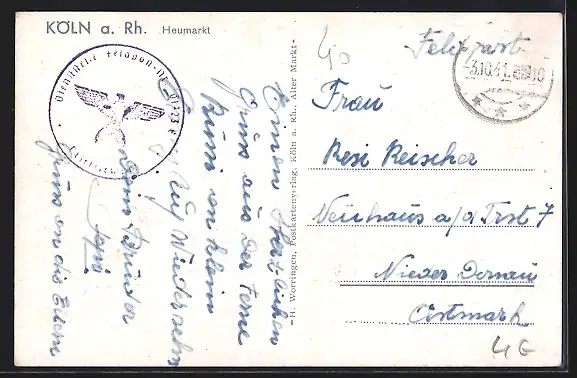 KÖLN a. Rh. Heumarkt
Dienststelle Feldpost-Nr.
40
Feldpost
3.10.41. 10
Frau
Resi Reischer
Neuhaus a/d Trst 7
Nieder Donau
Ostmark
4E
Einen Herzlichen
Gruss aus der Ferne
Auf Wiedersehn
Dein Bruder
Gruss an die Eltern
H. Worringen, Postkartenverlag, Köln a. Rh. Alter Markt